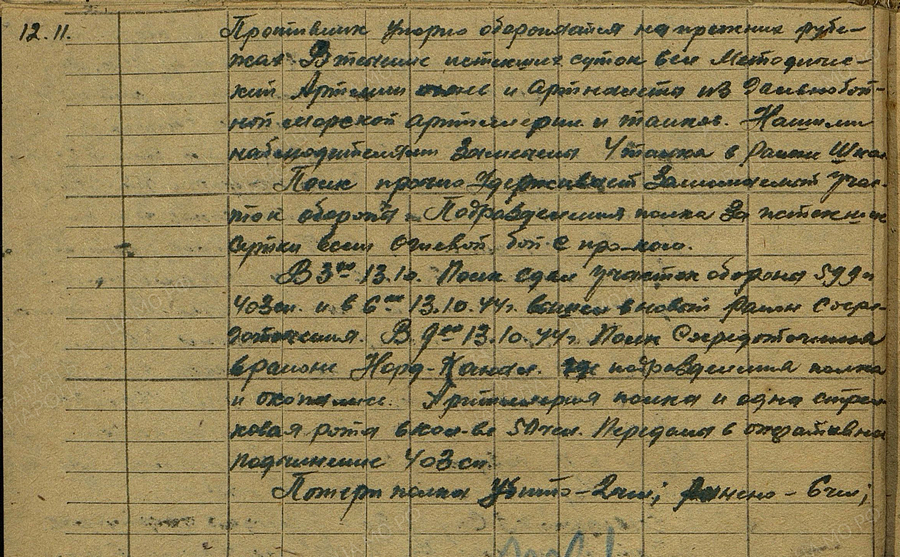 12.11. Противник упорно обороняется на прежних рубе-
жах. В течение истекших суток вел методичес-
кий Артиллер и артналета из дальнобой-
ной морской артиллерии и танков. Нашими
наблюдателями замечены 4 танка в районе
Полк прочно удерживает занимаемый учас-
ток обороны. Подразделения полка за истекшие
сутки вели огневой бой с пр-ком.
В 3 00 13.10. Полк сдал участок обороны
403 сп. и в 6 00 13.10.44г. в новый район сосре-
доточения. В 9 00 13.10.44г. Полк сосредоточился
в районе Норд-Канал. подразделения полка
и окопались. Артиллерия полка и одна стрел-
ковая рота в кол-ве 50 чел. Переданы в оперативное
подчинение 403 сп.
Потери полка Убито - 2 чел; ранено - 6 чел;